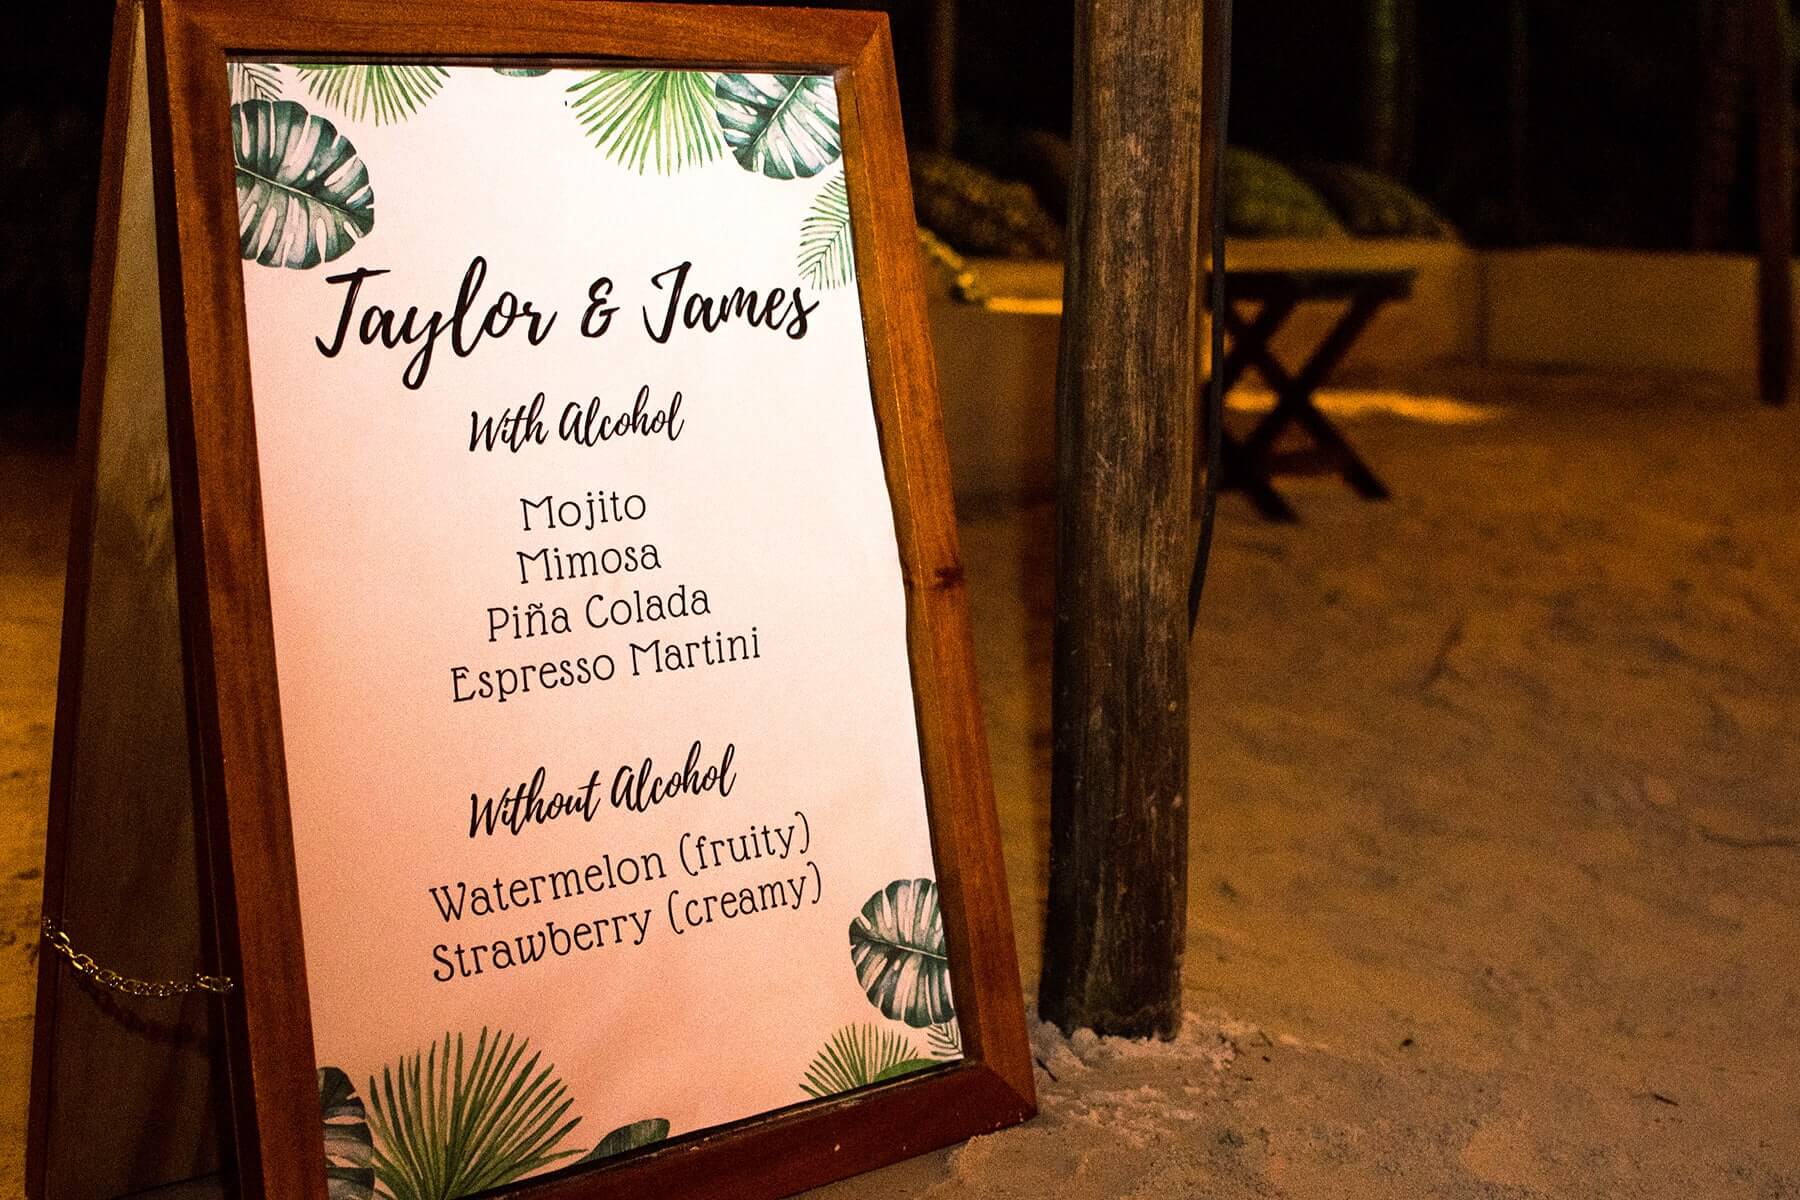 Taylor & James
With Alcohol
Mojito
Mimosa
Piña Colada
Espresso Martini
Without Alcohol
Watermelon (fruity)
Strawberry (creamy)